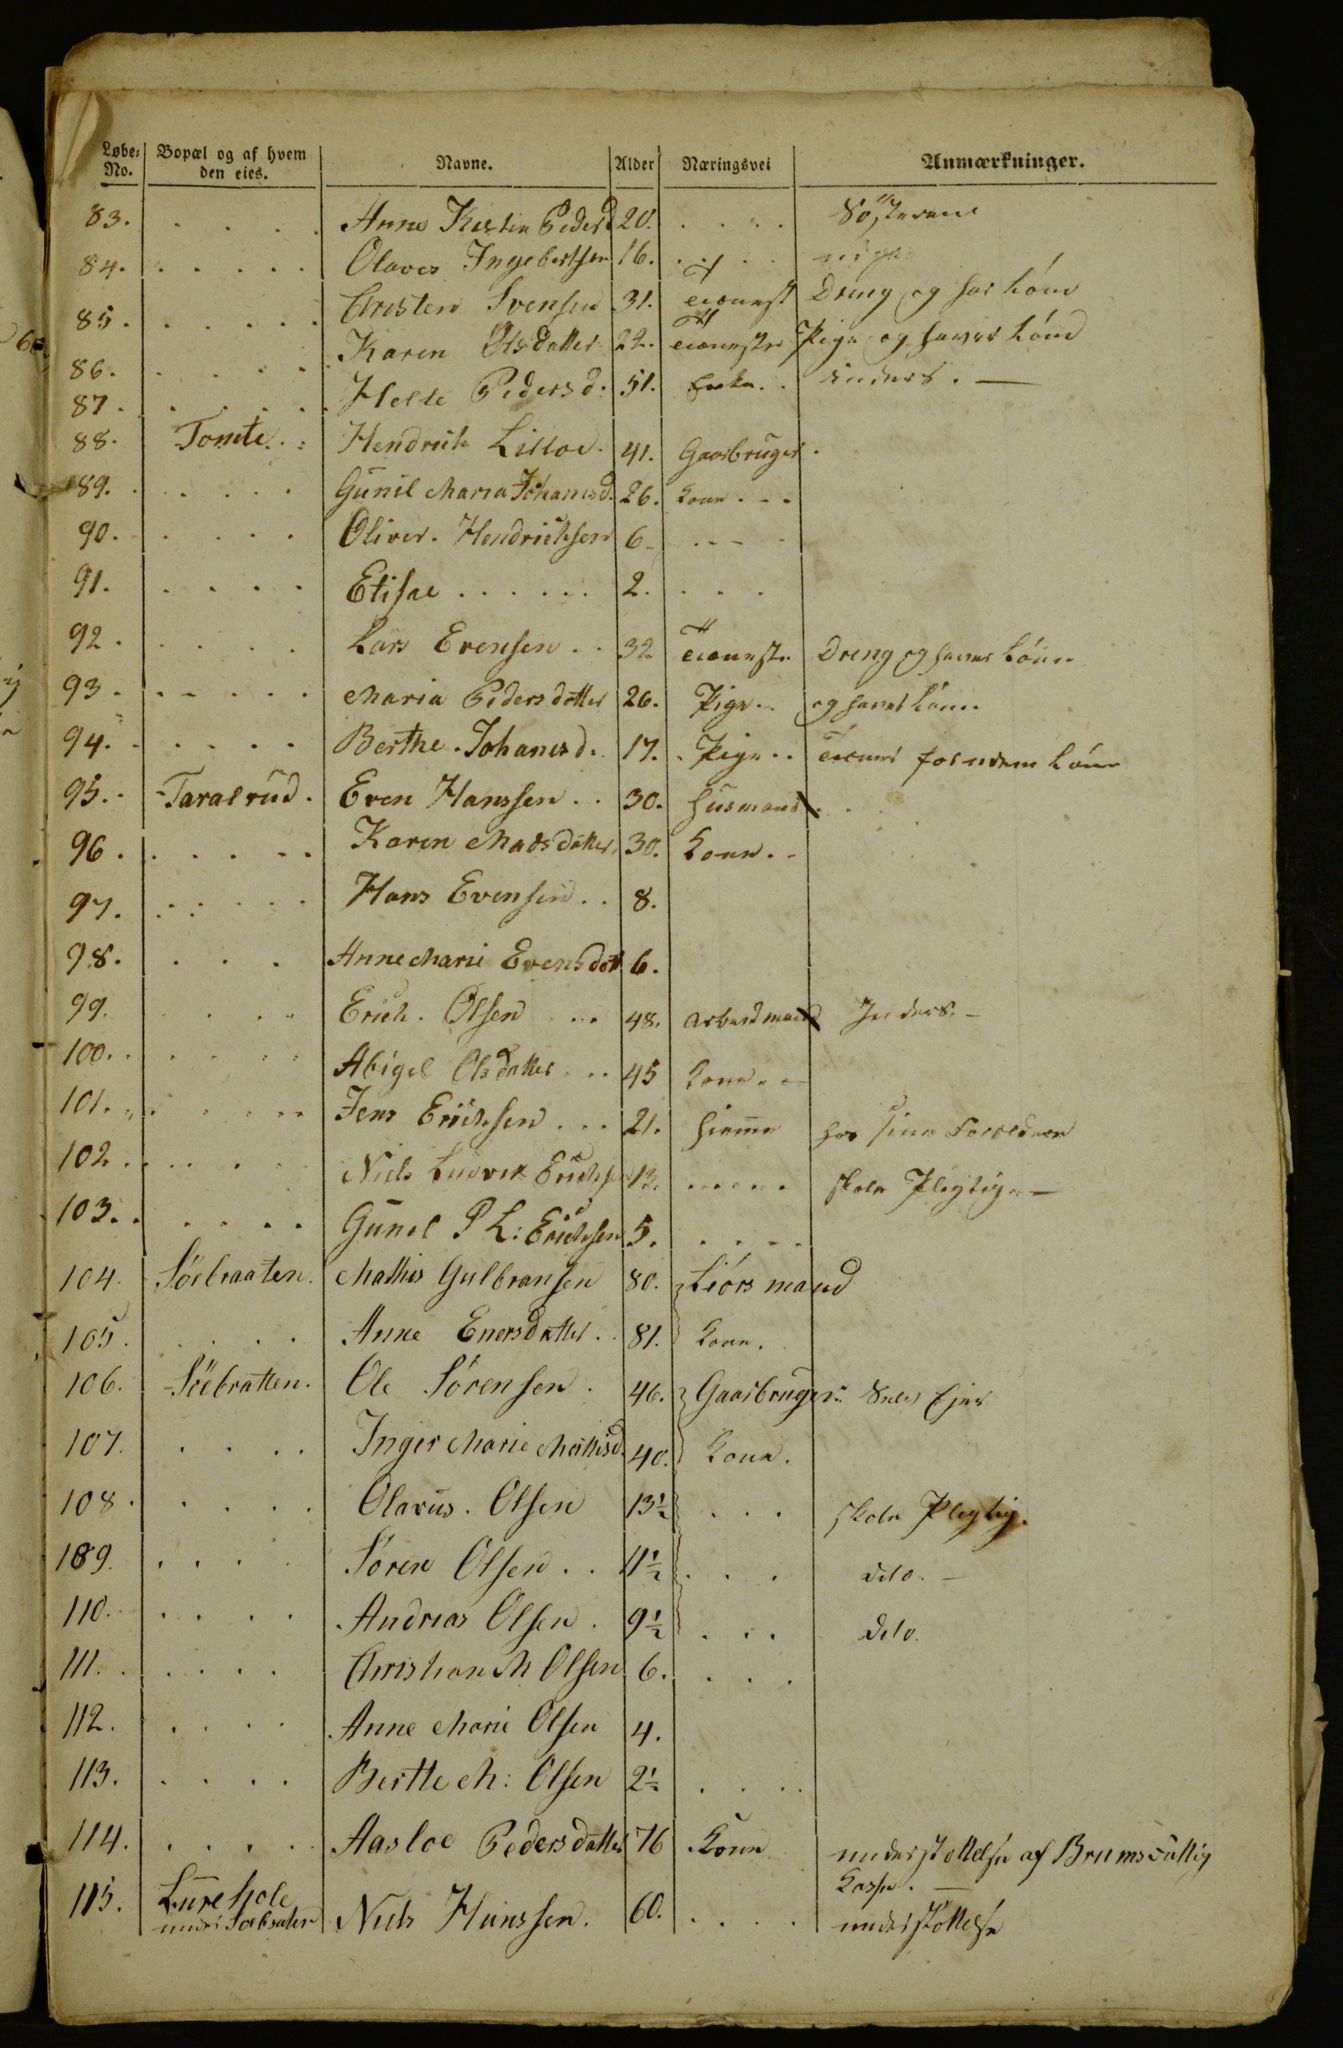 Løbe-No. Bopæl og af hvem den eies. Navne. Alder Næringsvei Anmærkninger.
83. Anne Kirstin Pedersd 20. Søsteren
84. Olaves Ingebertsen 16.
85. Christen Svensen 31. Dreng og har Lóun
86. Karen Olsdatter 22. Pige og haver Lóun
87. Helle Pedersd. 51. Inders. —
88. Tomte. Hendrich Lilloe. 41. Gaarbruger.
89. Gunil Maria Johansd. 26. Kone
90. Oliver. Hendrichsen 6
91. Elisae 2.
92. Lars Evensen 32 Dreng og haver Lóun
93. Maria Pedersdatter 26. Pige og haver Lóun
94. Berthe. Johansd. 17. Pige for uden Lóun
95. Taralrud. Even Hanssen 30. Husmand
96. Karen Madsdatter 30. Kone
97. Hans Evensen 8.
98. Anne Marie Evensdatt 6.
99. Erich. Olsen 48. Arbeidmand Inders. —
100. Abigel Olsdatter 45 Kone
101. Jens Erichsen 21. hiemme hos sine Foreldren
102. Niels Ludvik Erichs 13. skole Pligtig —
103. Gunel P L: Erichsen 5.
104. Sórbraaten. Mathis Gulbransen 80. Fiórs mand
105. Anne Enersdatter 81. Kone.
106. Söebratten. Ole Sórensen. 46. Gaarbruger. Selv Ejer
107. Inger Marie Mathisd. 40. Kone.
108. Olavus. Olsen 13½ skole Pligtig.
109. Sóren Olsen 11½ dito. —
110. Andreas Olsen. 9½ dito.
111. Christian M Olsen 6.
112. Anne Marie Olsen 4.
113. Berthe M: Olsen 2½
114. Aasloe Pedersdatter 76 Kone understøttelse af Brumsfattig
Kasse. —
115. Lurehole
under Sorbraten Niels Hanssen. 60. understøttelse